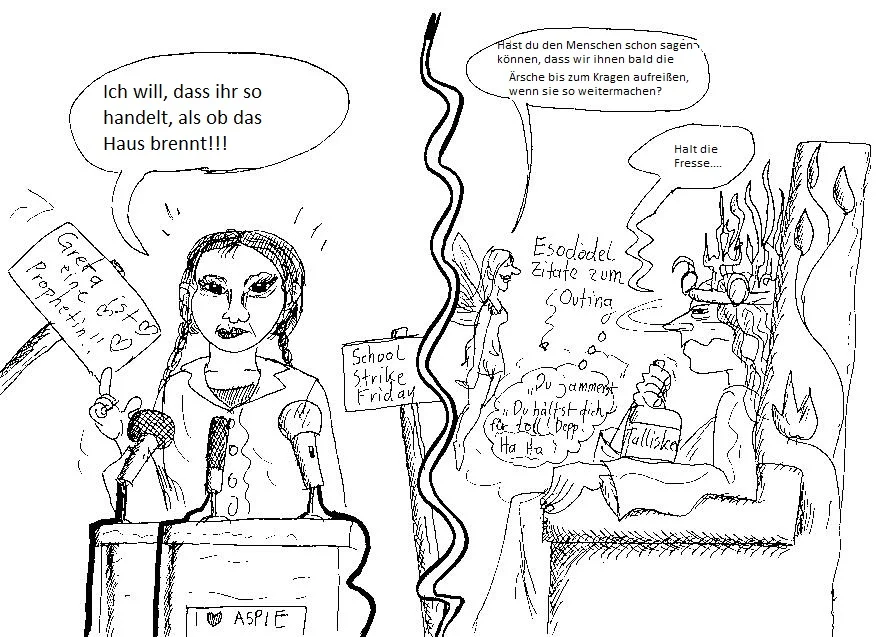 Ich will, dass ihr so
handelt, als ob das
Haus brennt!!!
Greta ist
eine
Prophetin!!
School
Strike
Friday
I ASPIE
Hast du den Menschen schon sagen
können, dass wir ihnen bald die
Ärsche bis zum Kragen aufreißen,
wenn sie so weitermachen?
Halt die
Fresse....
Esodödel
Zitate zum
Outing
"Du jammerst"
"Du hältst dich
für toll! Depp!
Ha Ha
Tallisker